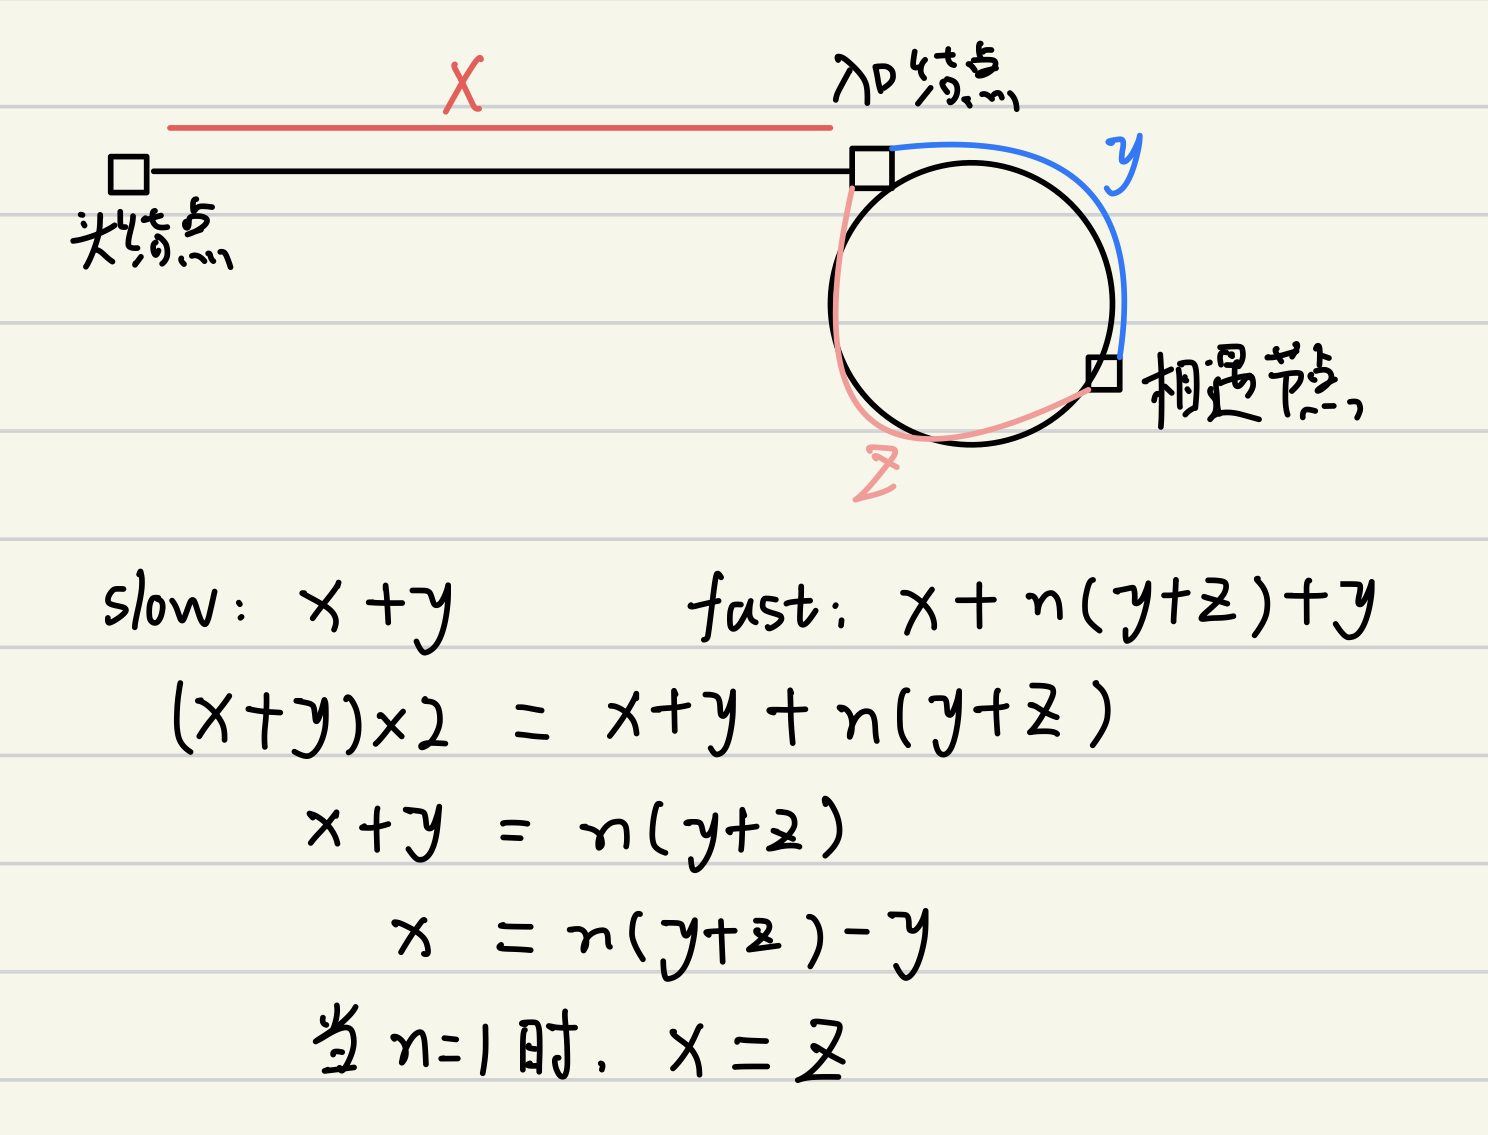 x
入口结点
y
头结点
相遇节点
z
slow: x+y fast: x+n(y+z)+y
(x+y)×2 = x+y+n(y+z)
x+y = n(y+z)
x = n(y+z)-y
当n=1时, x=z